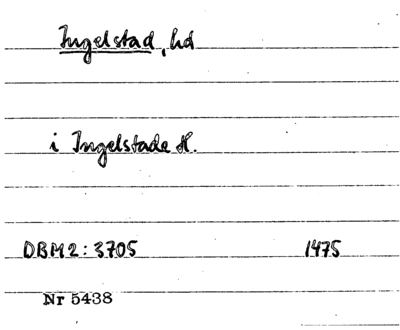 Ingelstad, hd
i Ingelstade H.
DBM2: 3705 1475
Nr 5438